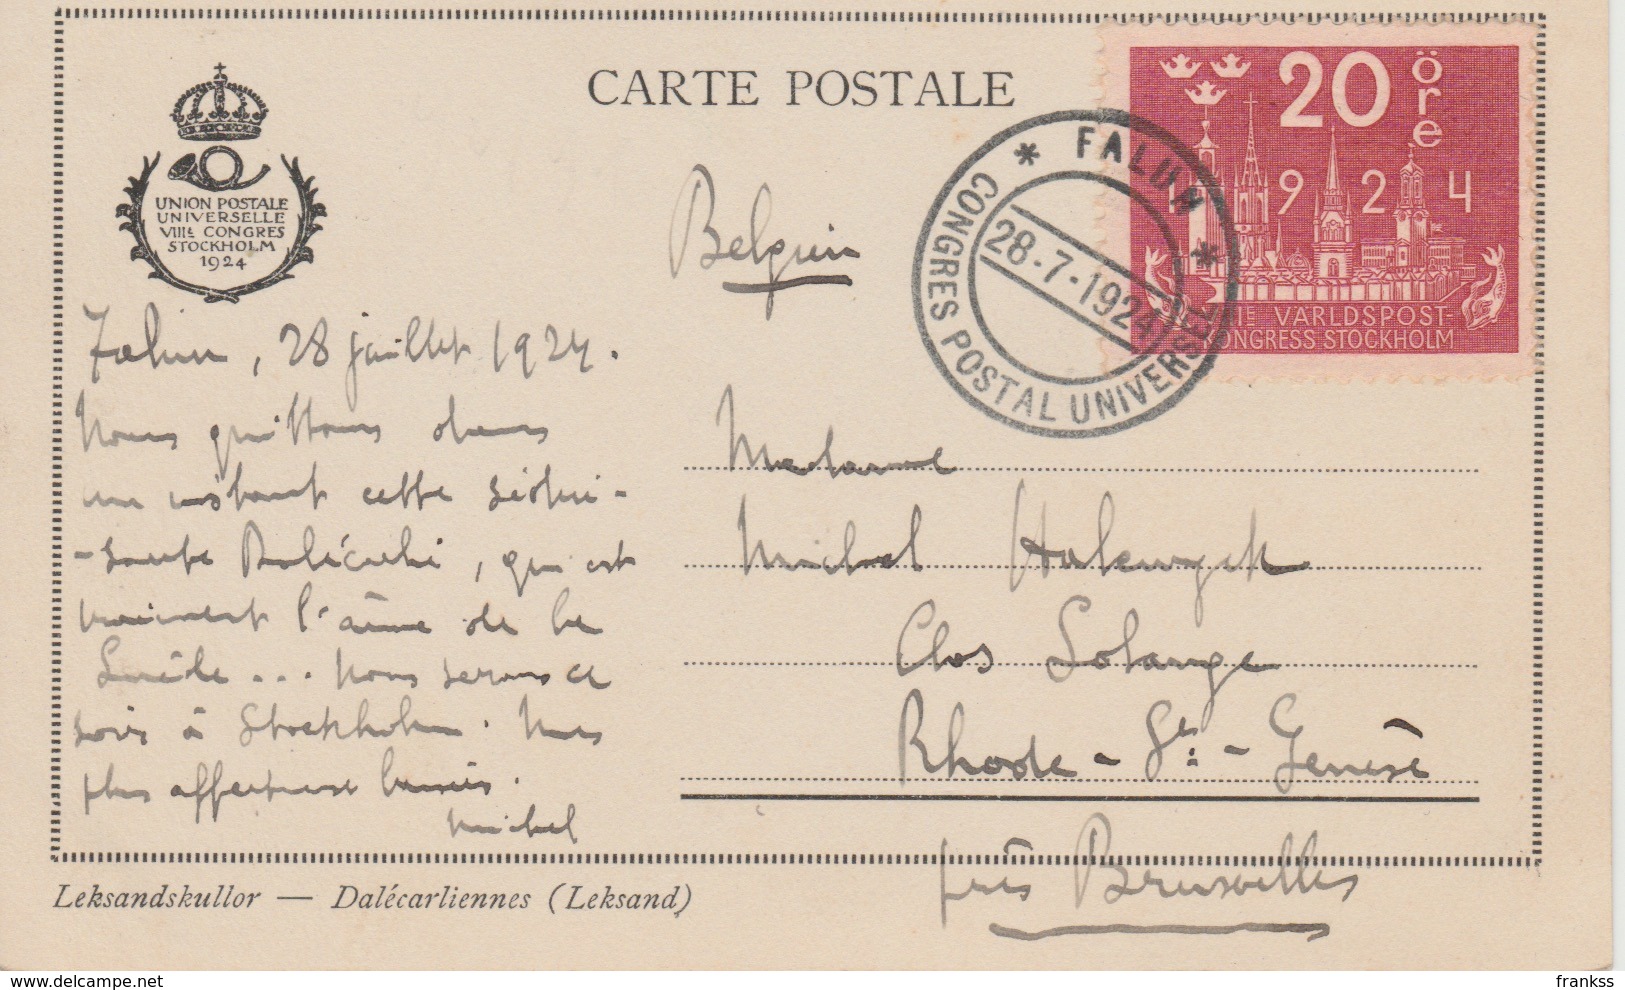 CARTE POSTALE
UNION POSTALE
UNIVERSELLE
VIIIE CONGRES
STOCKHOLM
1924
20 öre
1924
VIIIE VÄRLDSPOST-
KONGRESS STOCKHOLM
* FALUN *
28.-7-1924
CONGRES POSTAL UNIVERSEL
Belgien
Falun, 28 juillet 1924.
Nous quittons dans
un instant cette sédui-
-sante Dalécarlie, qui est
vraiment l'âme de la
Suède... Nous serons ce
soir à Stockholm. Mes
plus affectueux baisers.
Michel
Madame
Michel Halewyck
Clos Solange
Rhode-St-Genèse
près Bruxelles
Leksandskullor — Dalécarliennes (Leksand)
www.delcampe.net
frankss